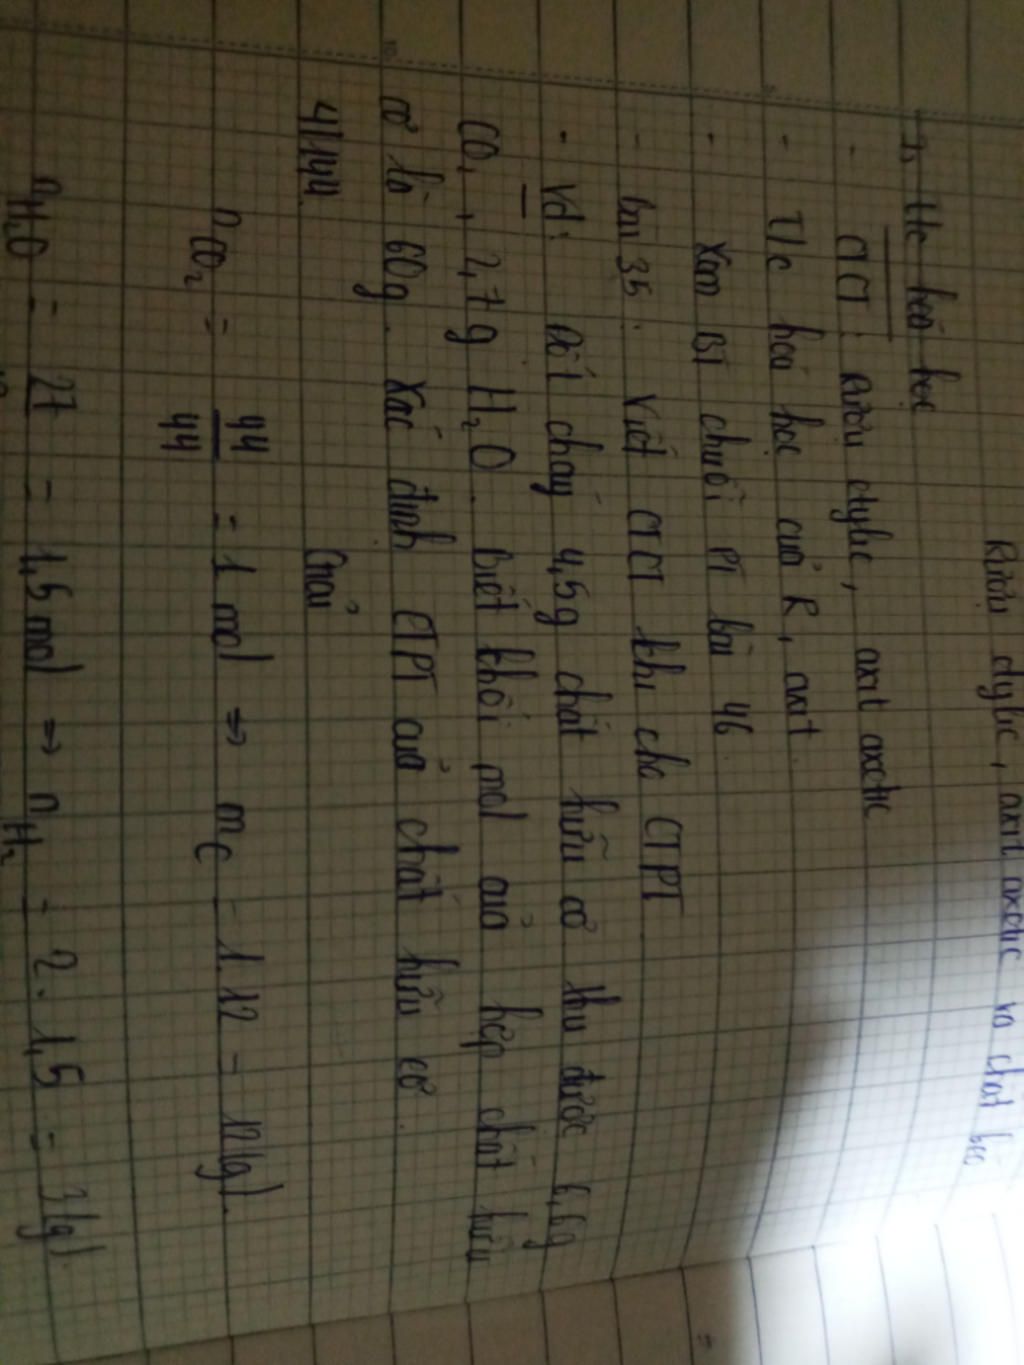 Rượu etylic, axit axetic và chất béo
I, t/c hoá học
- CTCT: Rượu etylic, axit axetic
- T/c hoá học của R, axit
- Xem BT chuỗi PT bài 46
- bài 35: Viết CTCT khi cho CTPT
- Vd: đốt cháy 4,5g chất hữu cơ thu được 6,6g
CO₂, 2,7g H₂O. biết khối mol của hợp chất hữu
cơ là 60g. Xác định CTPT của chất hữu cơ.
Giải
nCO₂ = 44/44 = 1 mol ⇒ mC = 1.12 = 12(g).
nH₂O = 27 = 1,5 mol ⇒ nH₂ = 2.1,5 = 3(g).